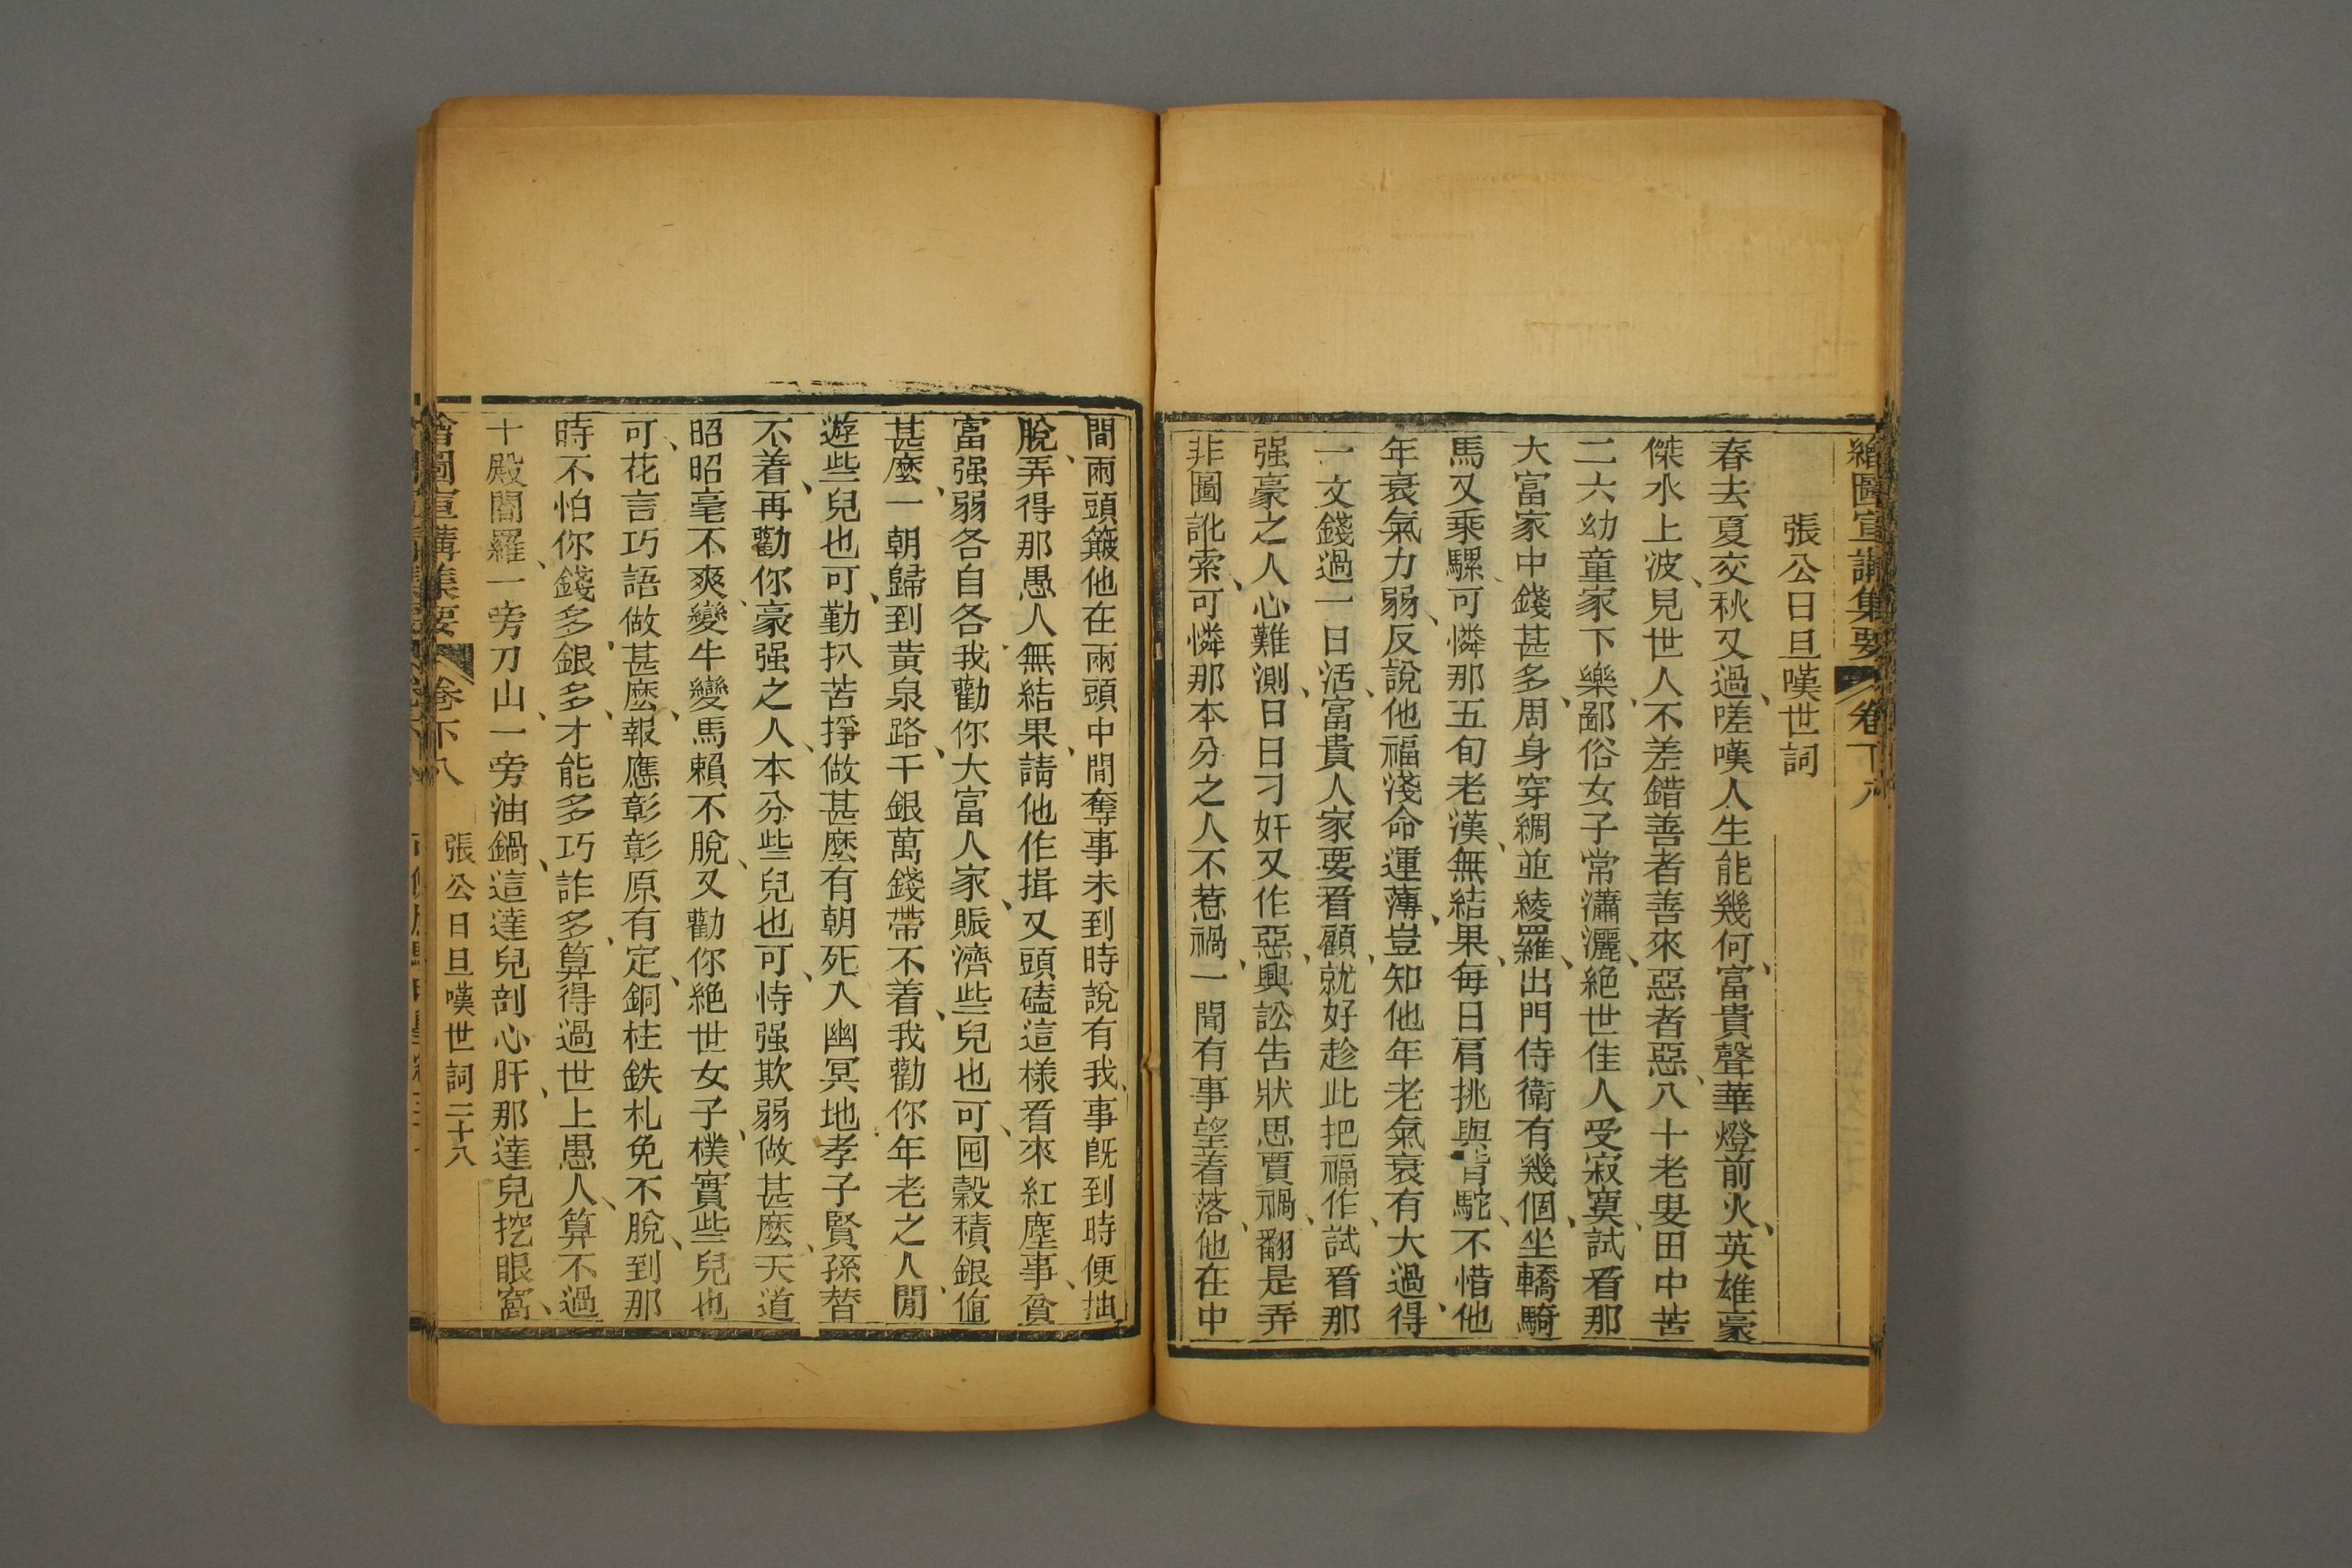 繪圖宣講集要 卷下八
張公日旦嘆世詞
春去夏交秋又過、嗟嘆人生能幾何、富貴聲華燈前火、英雄豪
傑水上波、見世人不差錯善者善來惡者惡、八十老叟田中苦
二六幼童家下樂、鄙俗女子常瀟灑、絕世佳人受寂寞、試看那
大富家中錢甚多、周身穿綢並綾羅、出門侍衛有幾個、坐轎騎
馬又乘騾、可憐那五旬老漢、無結果、每日肩挑與背駝、不惜他
年衰氣力弱、反說他福淺命運薄、豈知他年老氣衰有大過得、
一文錢過一日活、富貴人家要看顧、就好趁此把福作、試看那
强豪之人心難測、日日刁奸又作惡、興訟告狀思賈禍、翻是弄
非圖訛索、可憐那本分之人不惹禍、一聞有事望着落、他在中
間兩頭簸他在兩頭中間奪事未到時說有我、事旣到時便拙
脫、弄得那愚人無結果、請他作揖又頭磕這樣看來紅塵事、貧
富强弱各自各、我勸你大富人家、賑濟些兒也可、囤穀積銀值
甚麼、一朝歸到黄泉路、千銀萬錢帶不着、我勸你年老之人、閒
遊些兒也可、勤扒苦掙做甚麼有朝死入幽冥地孝子賢孫替
不着、再勸你豪强之人、本分些兒也可、恃强欺弱做甚麼、天道
昭昭毫不爽、變牛變馬賴不脫、又勸你絕世女子、樸實些兒也
可、花言巧語做甚麼、報應彰彰原有定、銅柱鉄札免不脫、到那
時不怕你錢多、銀多、才能多巧詐多、算得過世上愚人、算不過
十殿閻羅、一旁刀山、一旁油鍋、這達兒剖心肝、那達兒挖眼窩、
繪圖宣講集要 卷下八 張公日旦嘆世詞 二十八